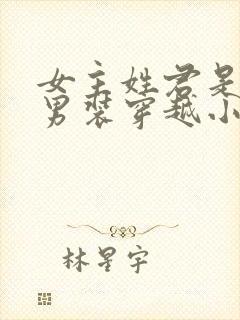 女主姓君是
男装穿越小
林星宇